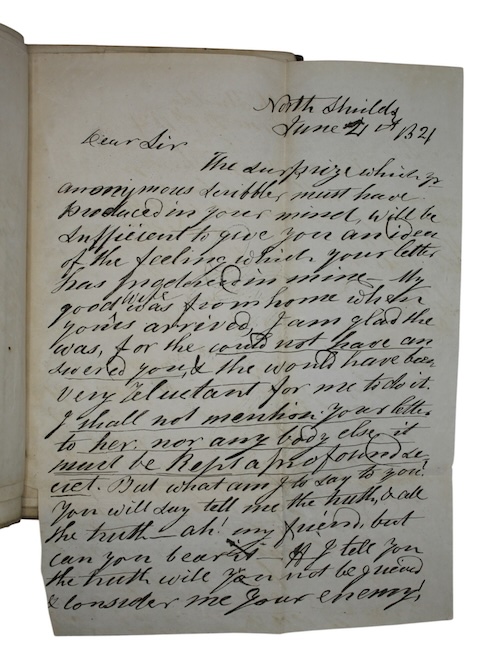 North Shields
June 21st 1821
Dear Sir
The surprize which yr
anonymous scribbler must have
produced in your mind, will be
sufficient to give you an idea
of the feeling which your letter
has produced in mine — My
good wife was from home when
yours arrived, I am glad she
was, for she could not have an
swered you, & she would have been
very reluctant for me to do it
I shall not mention your letter
to her, nor any body else, it
must be kept a profound se
cret. But what am I to say to you?
You will say tell me the truth, & all
the truth — ah! my friend, but
can you bear it — If I tell you
the truth will you not be grieved
& consider me your enemy!